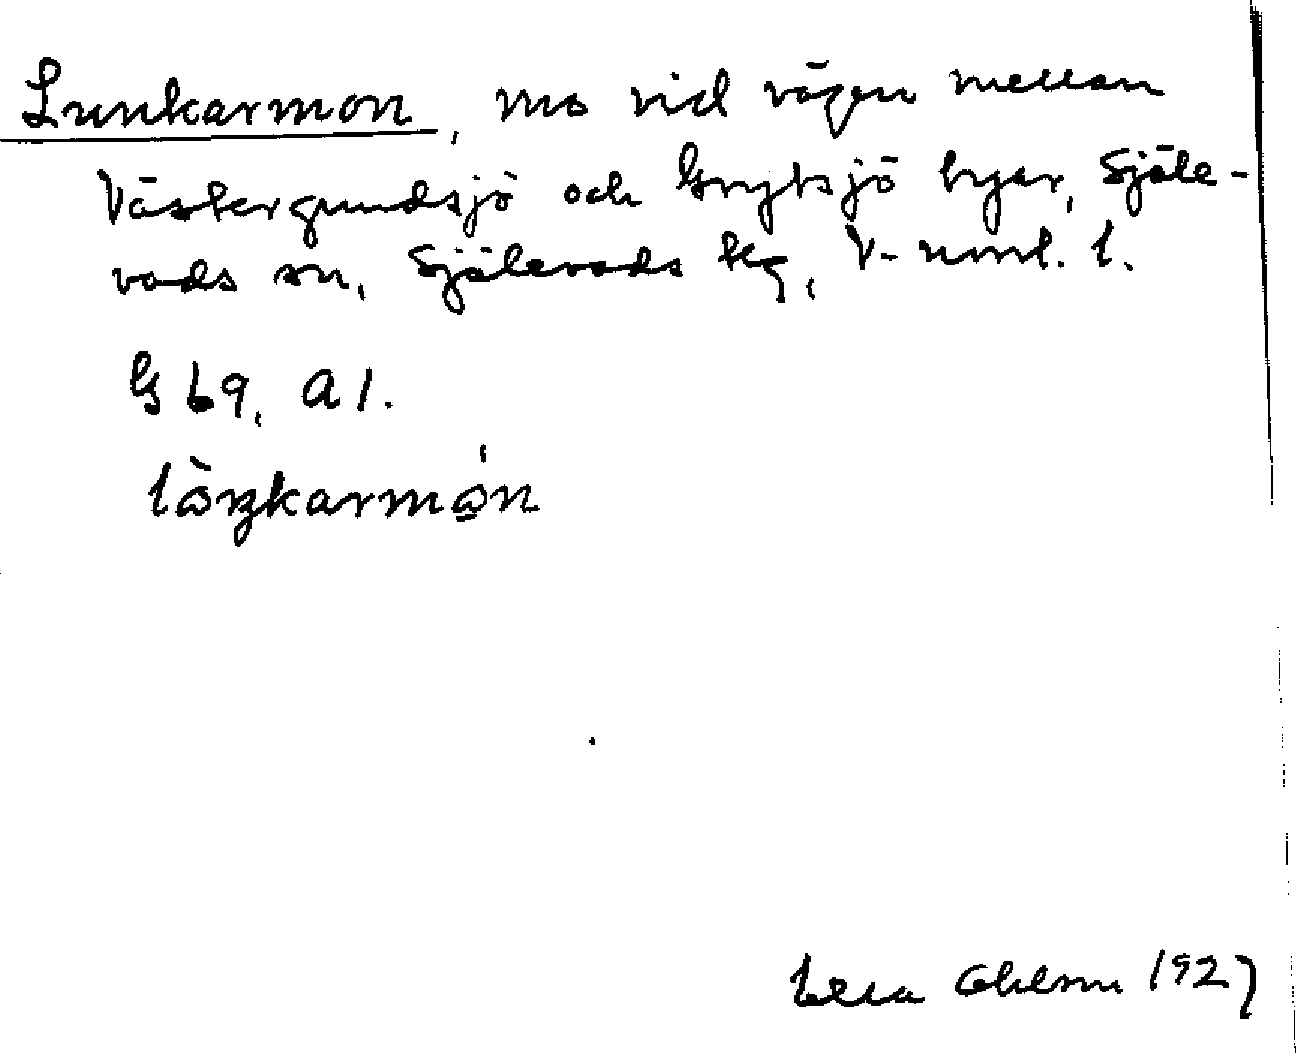 Lunkarmon, mo vid vägen mellan
Västergundsjö och Grytsjö byar, Själe-
vads sn, Själevads tg, V-norrl. l.
G 69, a 1.
lòŋkarmǫ́n
Ohlson 1927